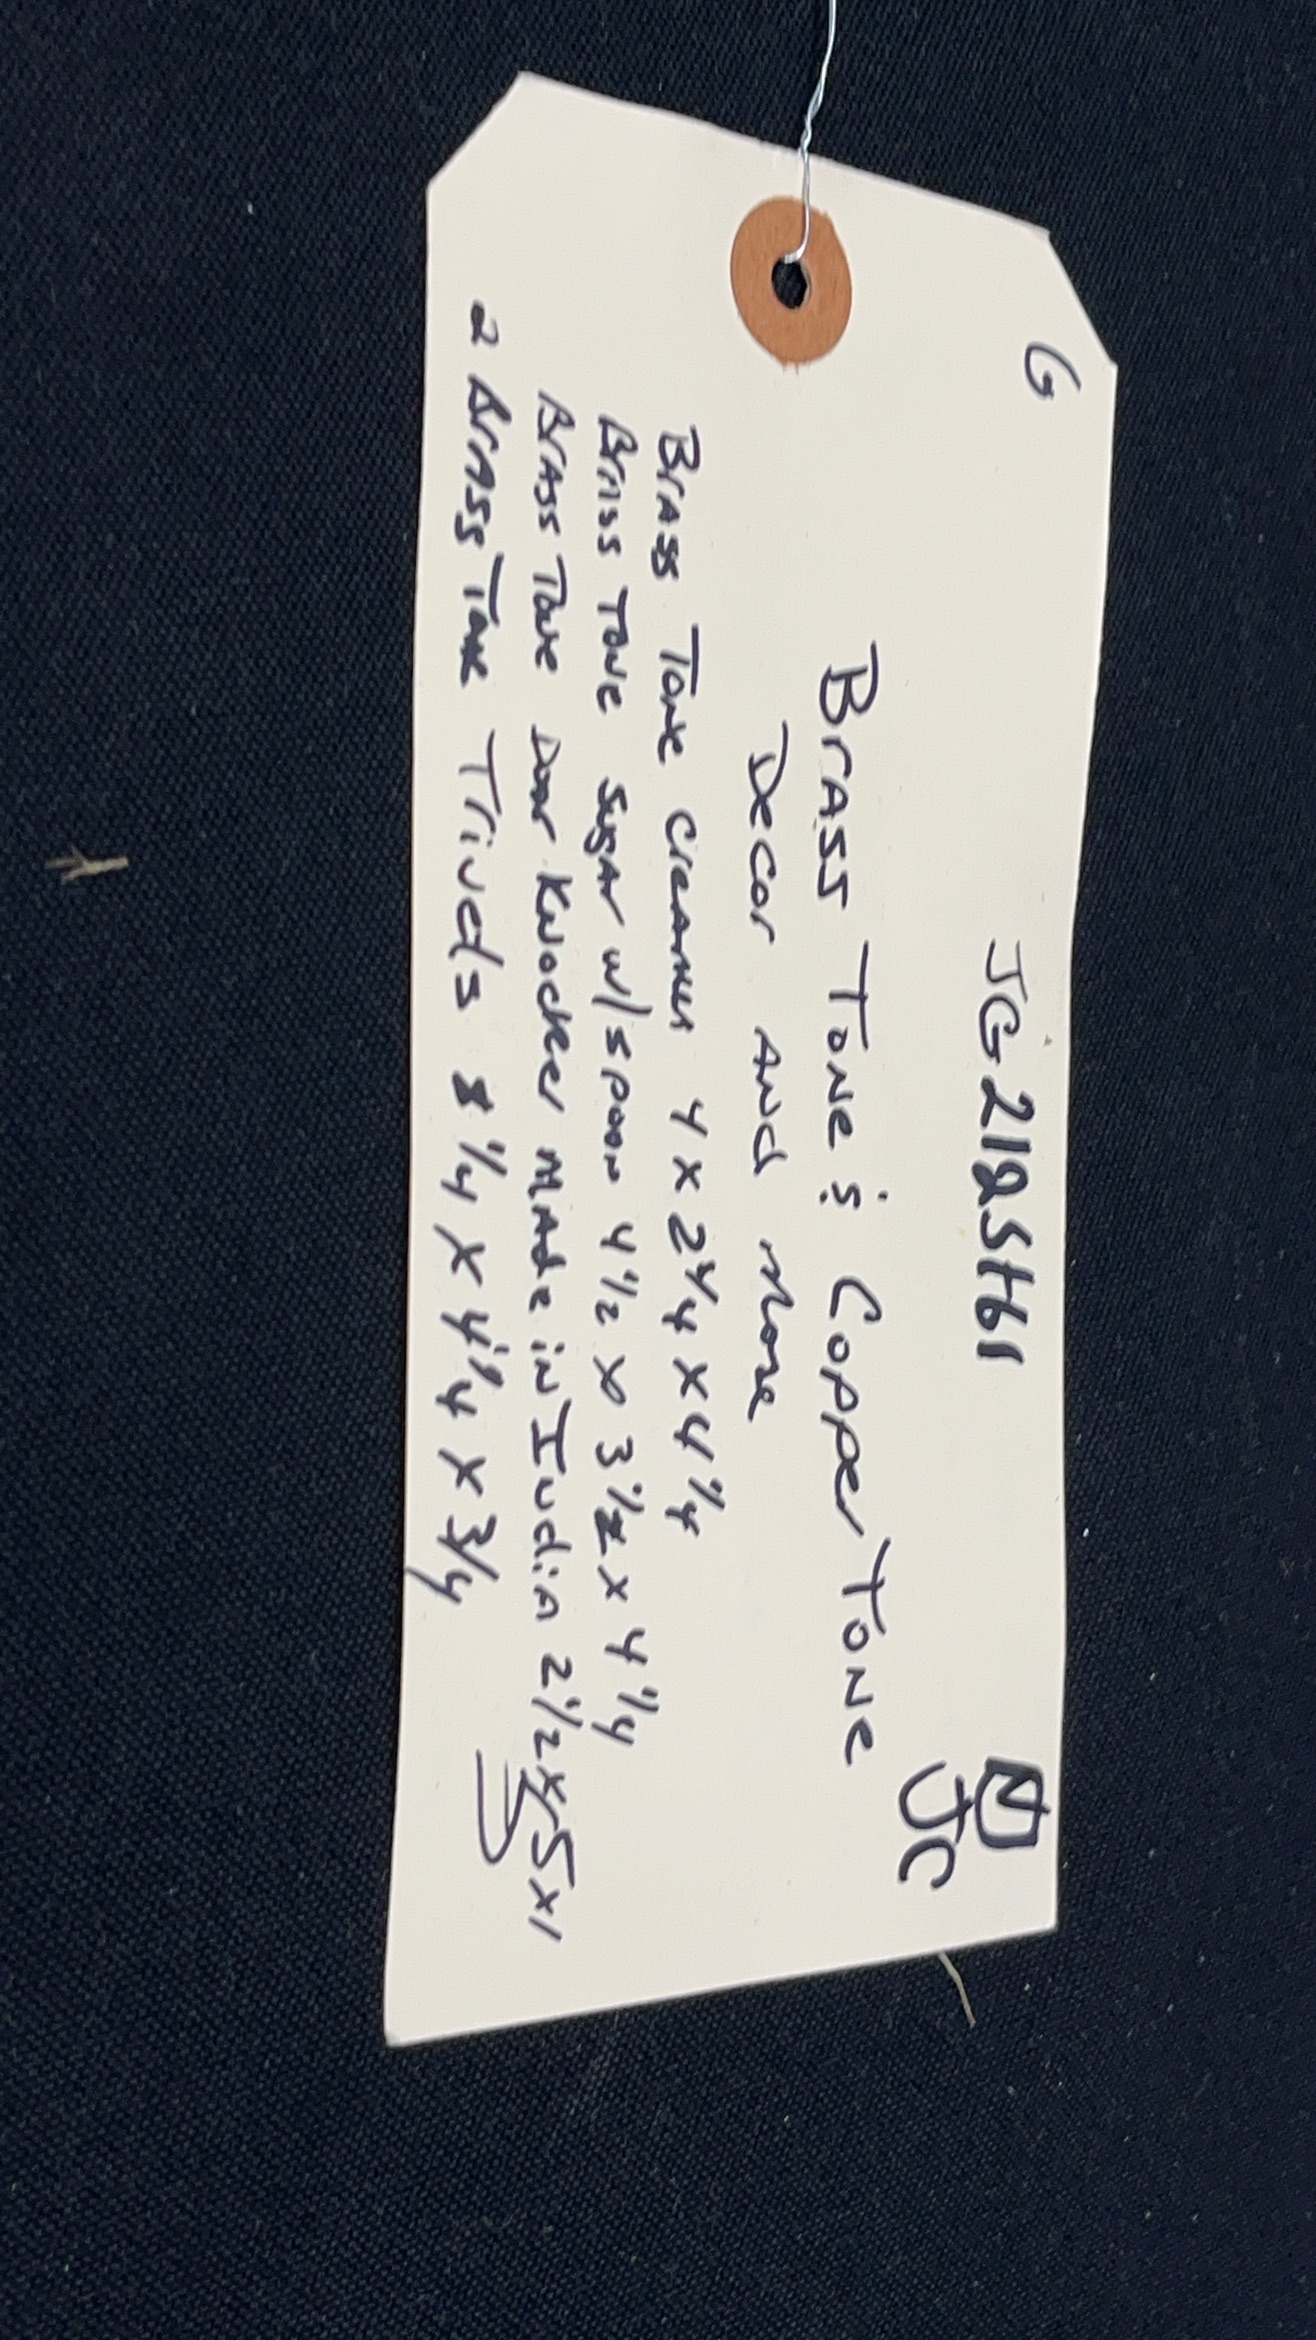 G
JG2125H61
N
JC
Brass Tone & Copper Tone
Decor And More
Brass Tone Creamer 4 x 2 1/4 x 4 1/4
Brass Tone Sugar w/spoon 4 1/2 x 3 1/2 x 4 1/4
Brass Tone Door Knocker Made in India 2 1/2 x 5 x 1
2 Brass Tone Trivets 8 1/4 x 4 1/4 x 3/4